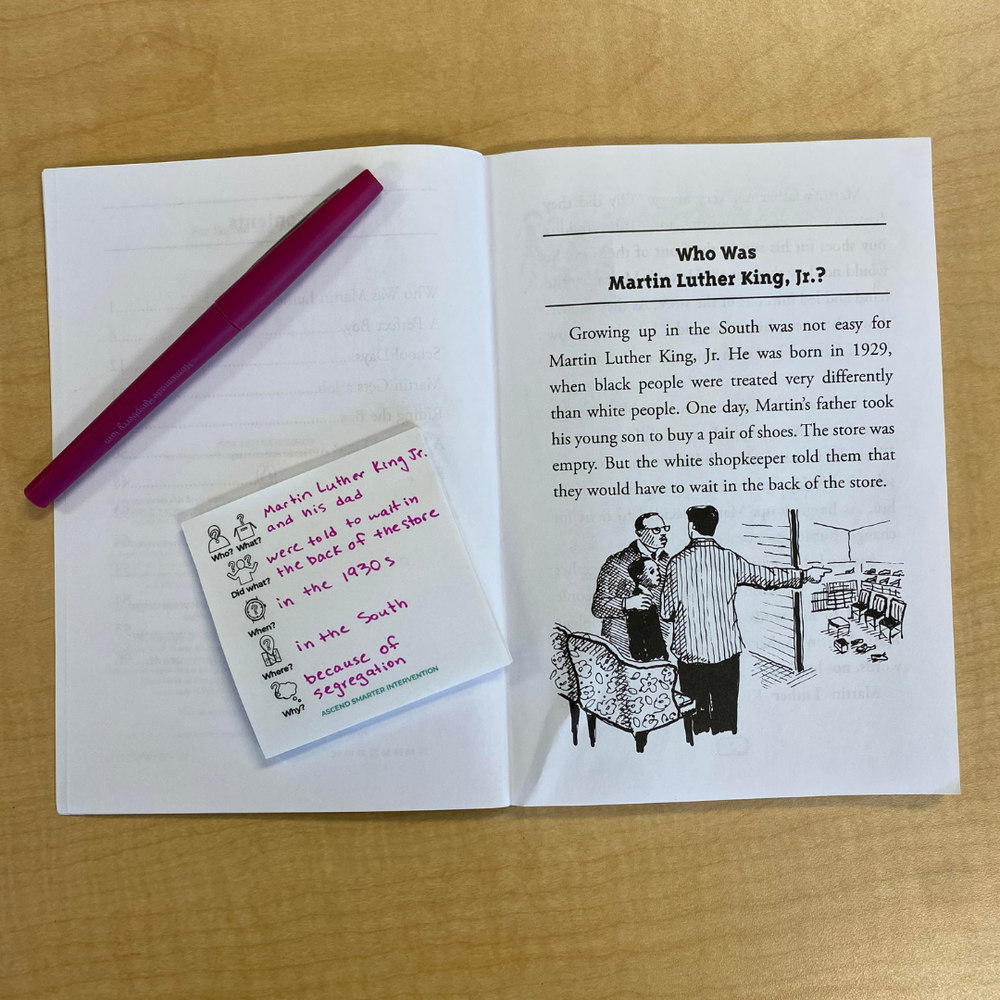 Martin Luther King Jr.
and his dad
Who? What?
were told to wait in
the back of the store
Did what?
in the 1930s
When?
in the South
Where?
because of
segregation
Why?
ASCEND SMARTER INTERVENTION
Who Was
Martin Luther King, Jr.?
Growing up in the South was not easy for
Martin Luther King, Jr. He was born in 1929,
when black people were treated very differently
than white people. One day, Martin's father took
his young son to buy a pair of shoes. The store was
empty. But the white shopkeeper told them that
they would have to wait in the back of the store.